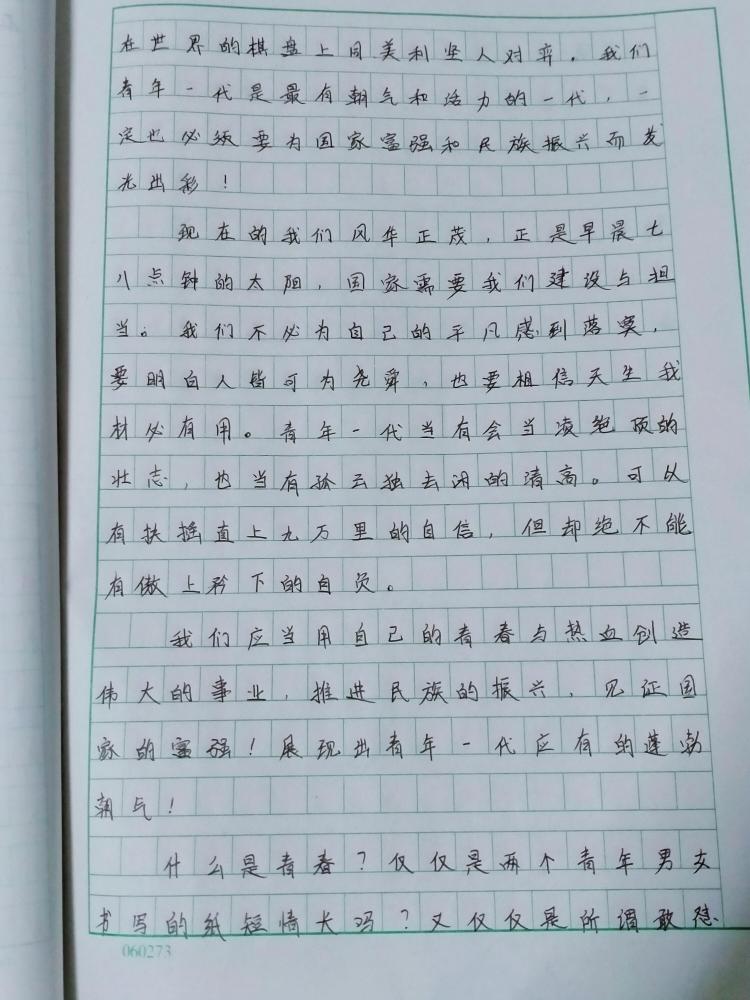 在世界的棋盘上同美利坚人对弈。我们
青年一代是最有朝气和活力的一代，一
定也必须要为国家富强和民族振兴而发
光出彩！
现在的我们风华正茂，正是早晨七
八点钟的太阳，国家需要我们建设与担
当。我们不必为自己的平凡感到落寞，
要明白人皆可为尧舜，也要相信天生我
材必有用。青年一代当有会当凌绝顶的
壮志，也当有孤云独去闲的清高。可以
有扶摇直上九万里的自信，但却绝不能
有傲上矜下的自负。
我们应当用自己的青春与热血创造
伟大的事业，推进民族的振兴，见证国
家的富强！展现出青年一代应有的蓬勃
朝气！
什么是青春？仅仅是两个青年男女
书写的纸短情长吗？又仅仅是所谓敢怒
060273